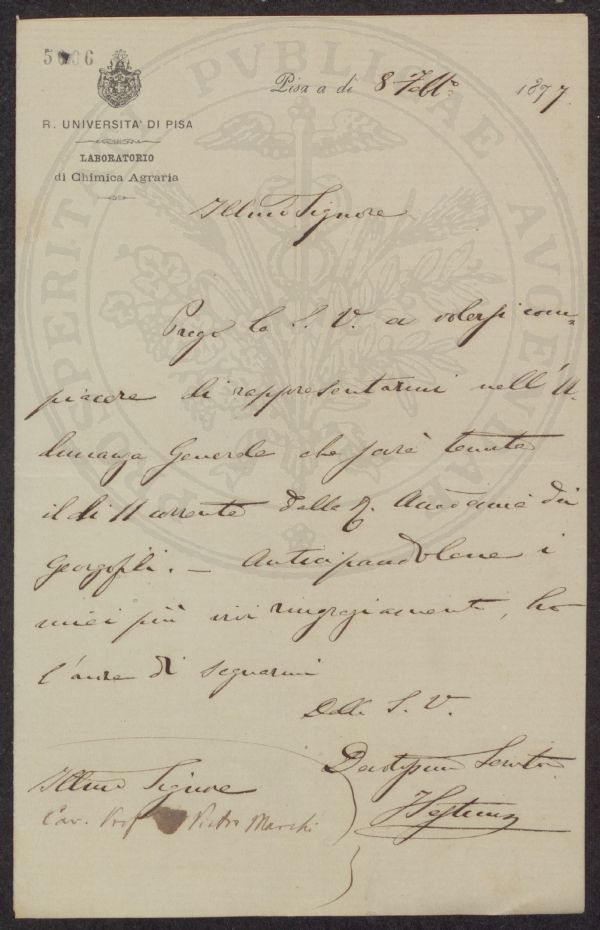 5006
R. UNIVERSITA' DI PISA
LABORATORIO
di Chimica Agraria
Pisa a dì 8 Febb.º 1877.
Illmo Signore
Prego la S. V. a volersi com=
piacere di rappresentarmi nell'A
dunanza Generale che sarà tenuta
il dì 11 corrente dalla R. Accademia dei
Georgofili. — Anticipandolene i
miei più vivi ringraziamenti, ho
l'onore di segnarmi
Della S. V.
Devotissimo Servitore
FSestini
Illmo Signore
Cav. Prof Pietro Marchi
PROSPERITATI PVBLICAE AVGENDAE